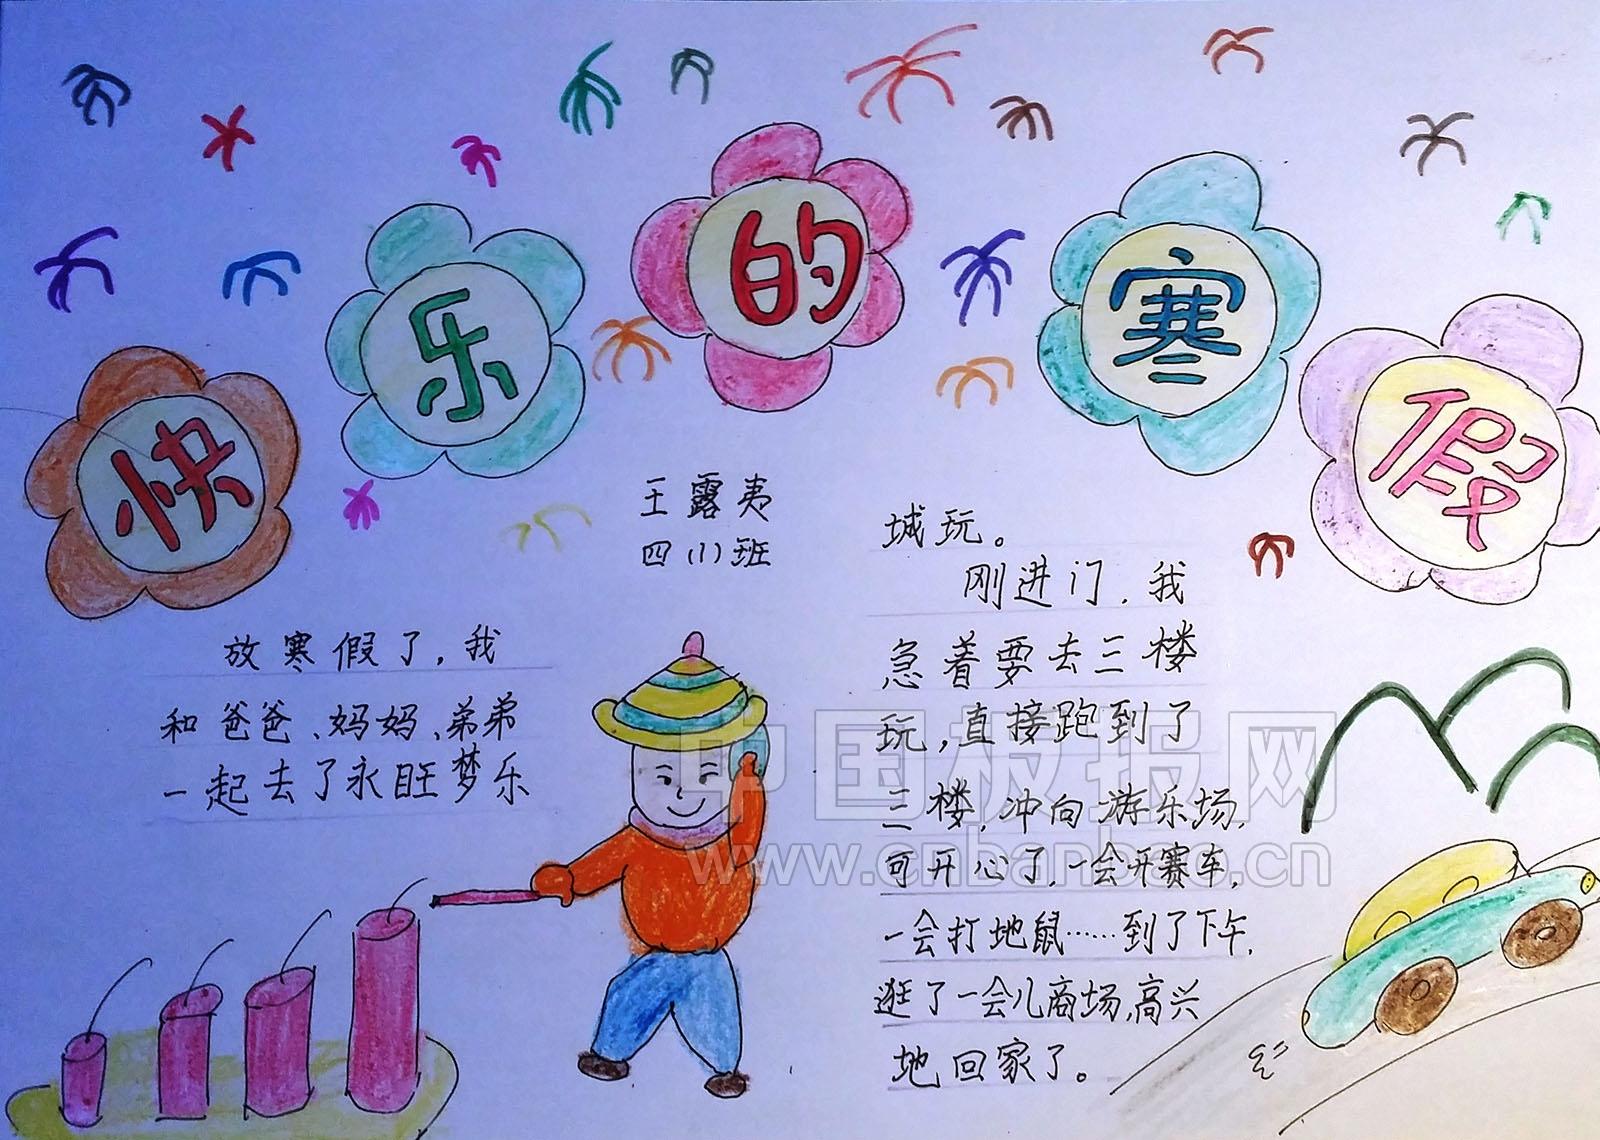 快乐的寒假
王露夷
四(1)班
放寒假了，我
和爸爸、妈妈、弟弟
一起去了永旺梦乐
城玩。
刚进门，我
急着要去三楼
玩，直接跑到了
三楼，冲向游乐场，
可开心了，一会开赛车，
一会打地鼠……到了下午，
逛了一会儿商场，高兴
地回家了。
中国板报网
www.cnbanbao.cn